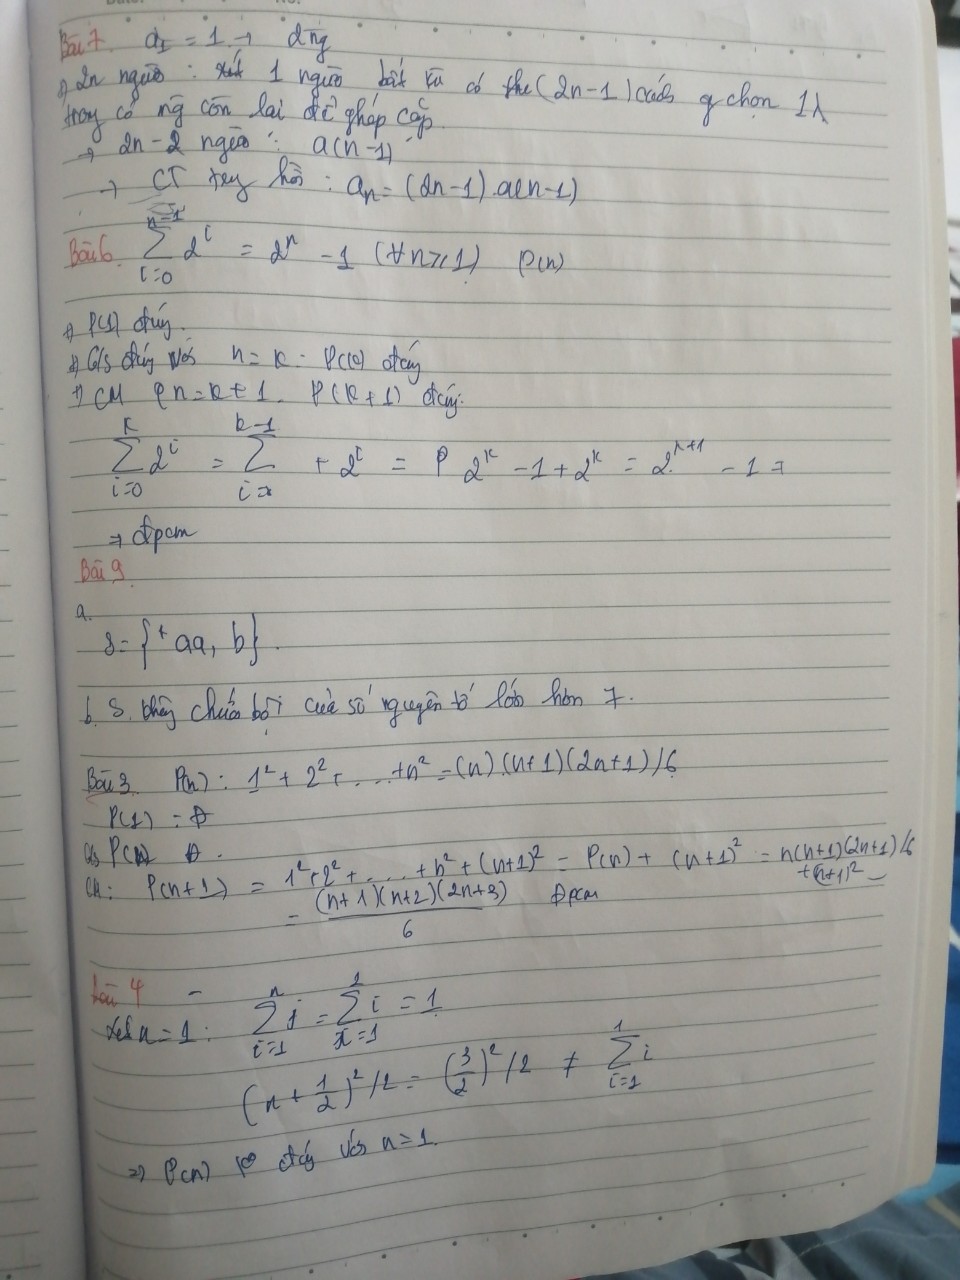 Bài 7. a₁ = 1 → 2 ng
+) 2n người : xét 1 người bất kì có thể (2n-1) cách chọn 1
trong số ng còn lại để ghép cặp.
→ 2n-2 người : a(n-1)
→ CT truy hồi : aₙ = (2n-1).a(n-1)
Bài 6. \sum_{i=0}^{n-1} 2^i = 2^n - 1 (∀n≥1) P(n)
+) P(1) đúng.
+) G/s đúng với n = k : P(k) đúng
+) CM n = k+1. P(k+1) đúng.
\sum_{i=0}^{k} 2^i = \sum^{k-1} + 2^i = 2^k - 1 + 2^k = 2^{k+1} - 1 =
⇒ đpcm
Bài 9
a.
S = { aa, b}.
b. S. không chứa bội của số nguyên tố lớn hơn 7.
Bài 3. P(n) : 1² + 2² + ... + n² = (n)(n+1)(2n+1)/6
P(1) = Đ
G/s P(n) Đ.
CM: P(n+1) = 1² + 2² + ... + n² + (n+1)² = P(n) + (n+1)² = n(n+1)(2n+1)/6
+(n+1)²
= \frac{(n+1)(n+2)(2n+3)}{6} Đpcm
Bài 4
Xét n=1 : \sum_{i=1}^{n} i = \sum_{i=1}^{1} i = 1
(n + \frac{1}{2})²/2 = (\frac{3}{2})²/2 ≠ \sum_{i=1}^{1} i
⇒ P(n) đúng với n=1.